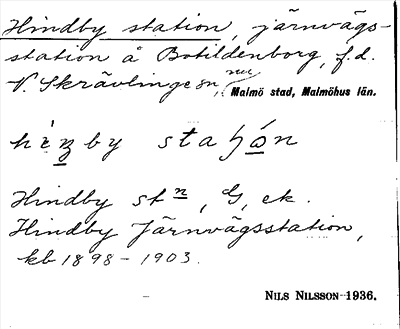 Hindby station, järnvägs-
station å Botildenborg, f.d.
V. Skrävlinge sn, nu Malmö stad, Malmöhus län.
by sta
Hindby stn, G, ek.
Hindby Järnvägsstation,
kb 1898-1903.
NILS NILSSON 1936.